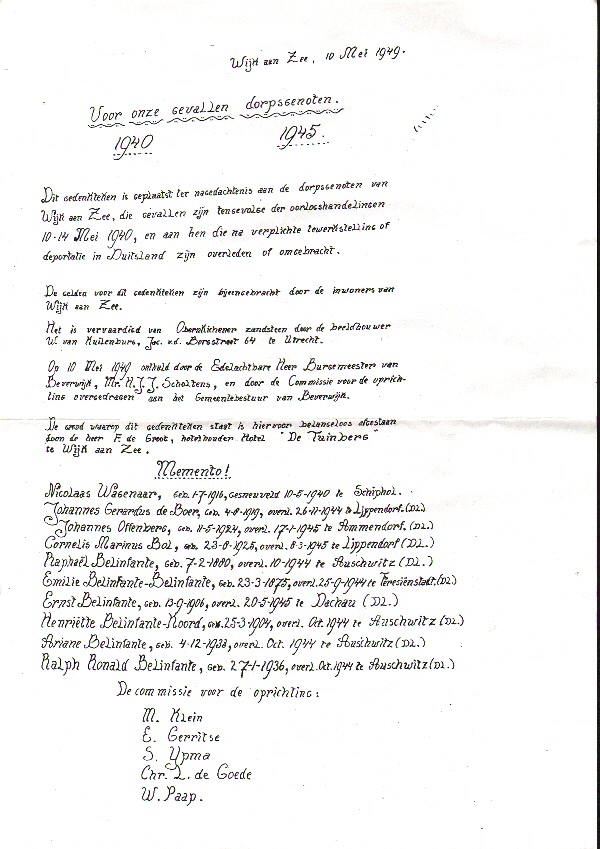 Wijk aan Zee, 10 Mei 1949.
Voor onze gevallen dorpsgenoten.
1940 1945.
Dit gedenkteken is geplaatst ter nagedachtenis aan de dorpsgenoten van
Wijk aan Zee, die gevallen zijn tengevolge der oorlogshandelingen
10-14 Mei 1940, en aan hen die na verplichte tewerkstelling of
deportatie in Duitsland zijn overleden of omgebracht.
De gelden voor dit gedenkteken zijn bijeengebracht door de inwoners van
Wijk aan Zee.
Het is vervaardigd van Obernkichener zandsteen door de beeldhouwer
W. van Kuilenburg, Jac. v.d. Borsstraat 64 te Utrecht.
Op 10 Mei 1949 onthuld door de Edelachtbare Heer Burgemeester van
Beverwijk, Mr. H.J.J. Scholtens, en door de Commissie voor de oprich-
ting overgedragen aan het Gemeentebestuur van Beverwijk.
De grond waarop dit gedenkteken staat is hiervoor belangeloos afgestaan
door de heer F. de Groot, hotelhouder Hotel "De Tuinberg"
te Wijk aan Zee.
Memento!
Nicolaas Wagenaar, geb. 1-7-1916, gesneuveld 10-5-1940 te Schiphol.
Johannes Gerardus de Boer, geb. 4-8-1919, overl. 26-11-1944 te Lippendorf (DL.)
Johannes Offenberg, geb. 11-5-1924, overl. 17-1-1945 te Ammendorf. (DL.)
Cornelis Marinus Bal, geb. 23-8-1925, overl. 8-3-1945 te Lippendorf (DL.)
Raphaël Belinfante, geb. 7-2-1880, overl. 10-1944 te Auschwitz (DL.)
Emilie Belinfante-Belinfante, geb. 23-3-1875, overl. 25-9-1944 te Teresiënstadt. (DL)
Ernst Belinfante, geb. 13-9-1906, overl. 20-5-1945 te Dachau (DL.)
Henriëtte Belinfante-Koord, geb. 25-3-1904, overl. Oct. 1944 te Auschwitz (DL.)
Ariane Belinfante, geb. 4-12-1938, overl. Oct. 1944 te Auschwitz (DL.)
Ralph Ronald Belinfante, geb. 27-1-1936, overl. Oct. 1944 te Auschwitz (DL.)
De commissie voor de oprichting:
M. Klein
E. Gerritse
S. Ypma
Chr. L. de Goede
W. Paap.